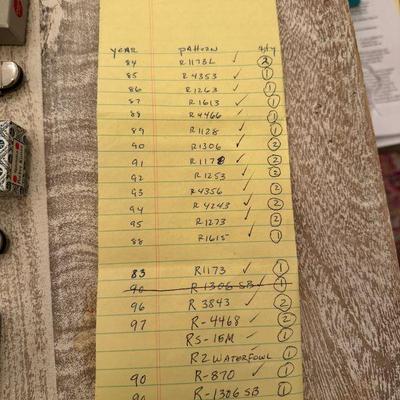 YEAR PATTERN QTY
84 R1173L ✓ 2
85 R4353 ✓ 1
86 R1263 ✓ 1
87 R1613 ✓ 1
88 R4466 ✓ 1
89 R1128 ✓ 1
90 R1306 ✓ 2
91 R117 ✓ 2
92 R1253 ✓ 2
93 R4356 ✓ 2
94 R4243 ✓ 2
95 R1273 ✓ 2
88 R1615 ✓ 1
83 R1173 ✓ 1
90 R1306 SB ✓ 1
96 R 3843 ✓ 2
97 R-4468 ✓ 2
RS-1EM ✓ 1
R2 WATERFOWL ✓ 1
90 R-870 ✓ 1
90 R-1306 SB ✓ 1